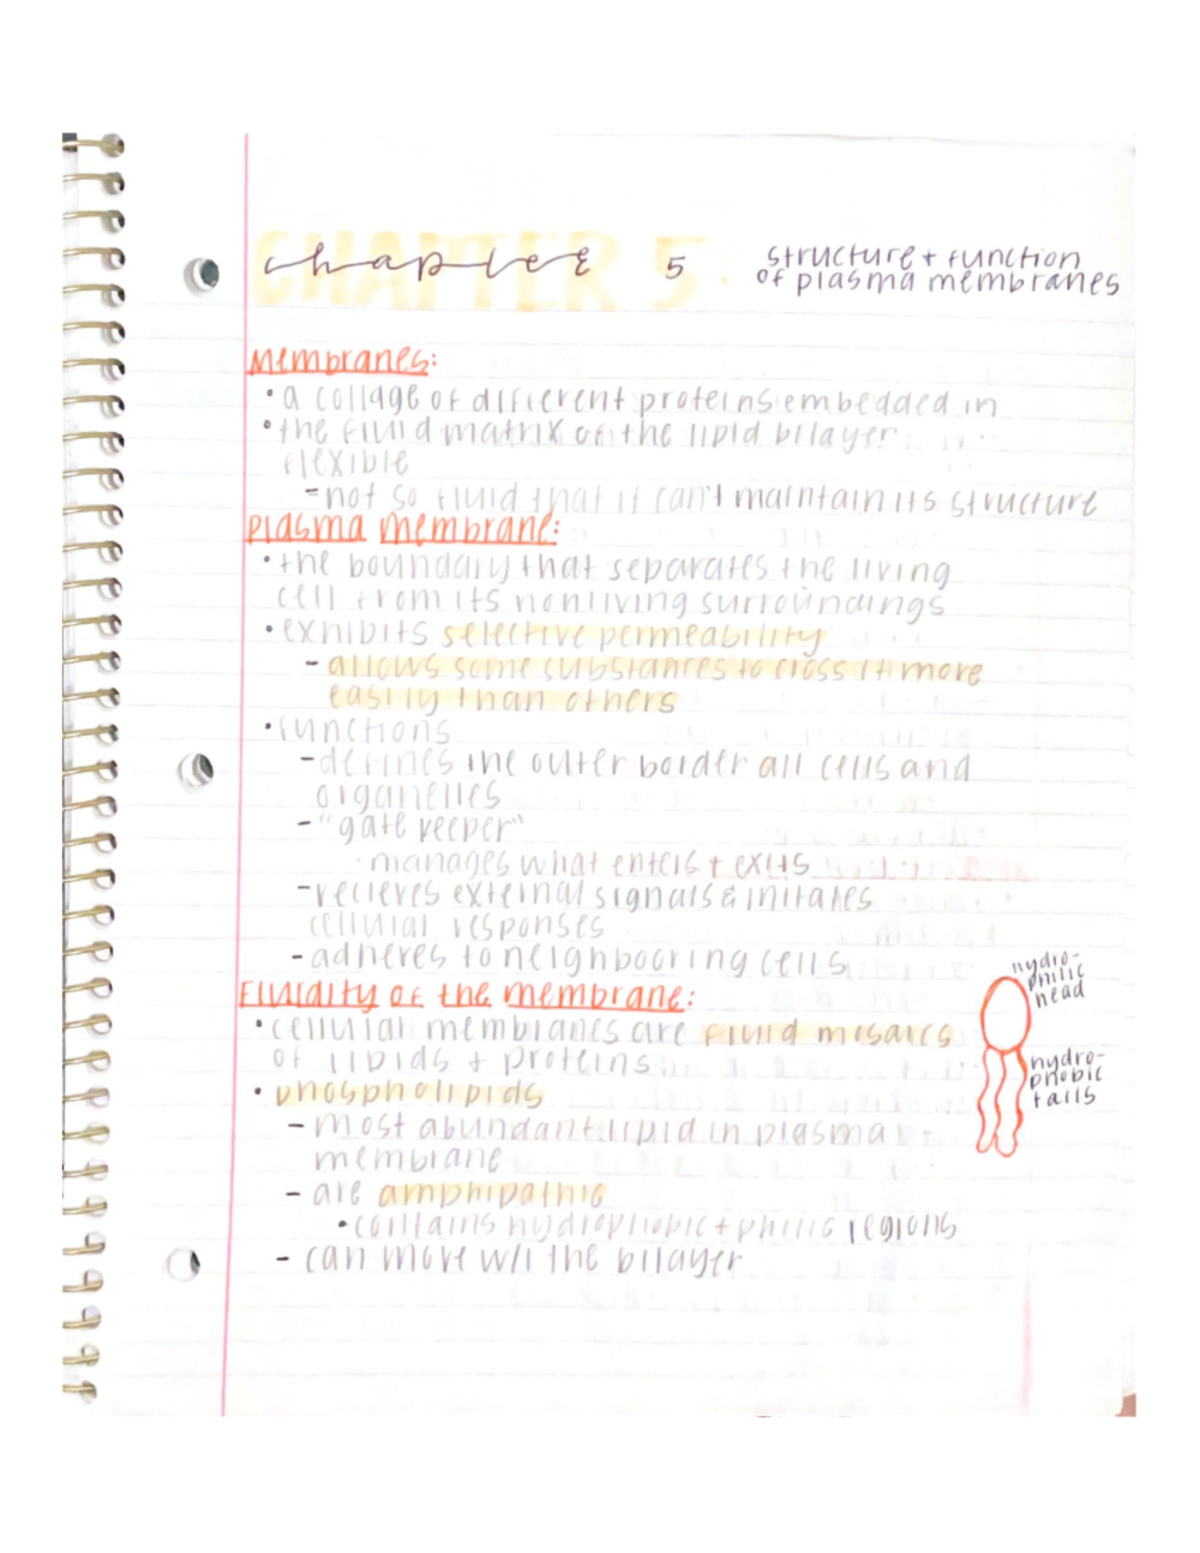 CHAPTER 5
chapter 5
structure + function
of plasma membranes
Membranes:
• a collage of different proteins embedded in
• the fluid matrix of the lipid bilayer
flexible
- not so fluid that it can't maintain its structure
plasma membrane:
• the boundary that separates the living
cell from its nonliving surroundings
• exhibits selective permeability
- allows some substances to cross it more
easily than others
• functions
- defines the outer border all cells and
organelles
- "gate keeper"
· manages what enters + exits
- recieves external signals & initates
cellular responses
- adheres to neighbooring cells
Fluidity of the membrane:
• cellular membranes are fluid mosaics
of lipids + proteins
• phospholipids
- most abundant lipid in plasma
membrane
- are amphipathic
• contains hydrophobic + philic regions
- can move w/i the bilayer
hydro-
philic
head
hydro-
phobic
tails